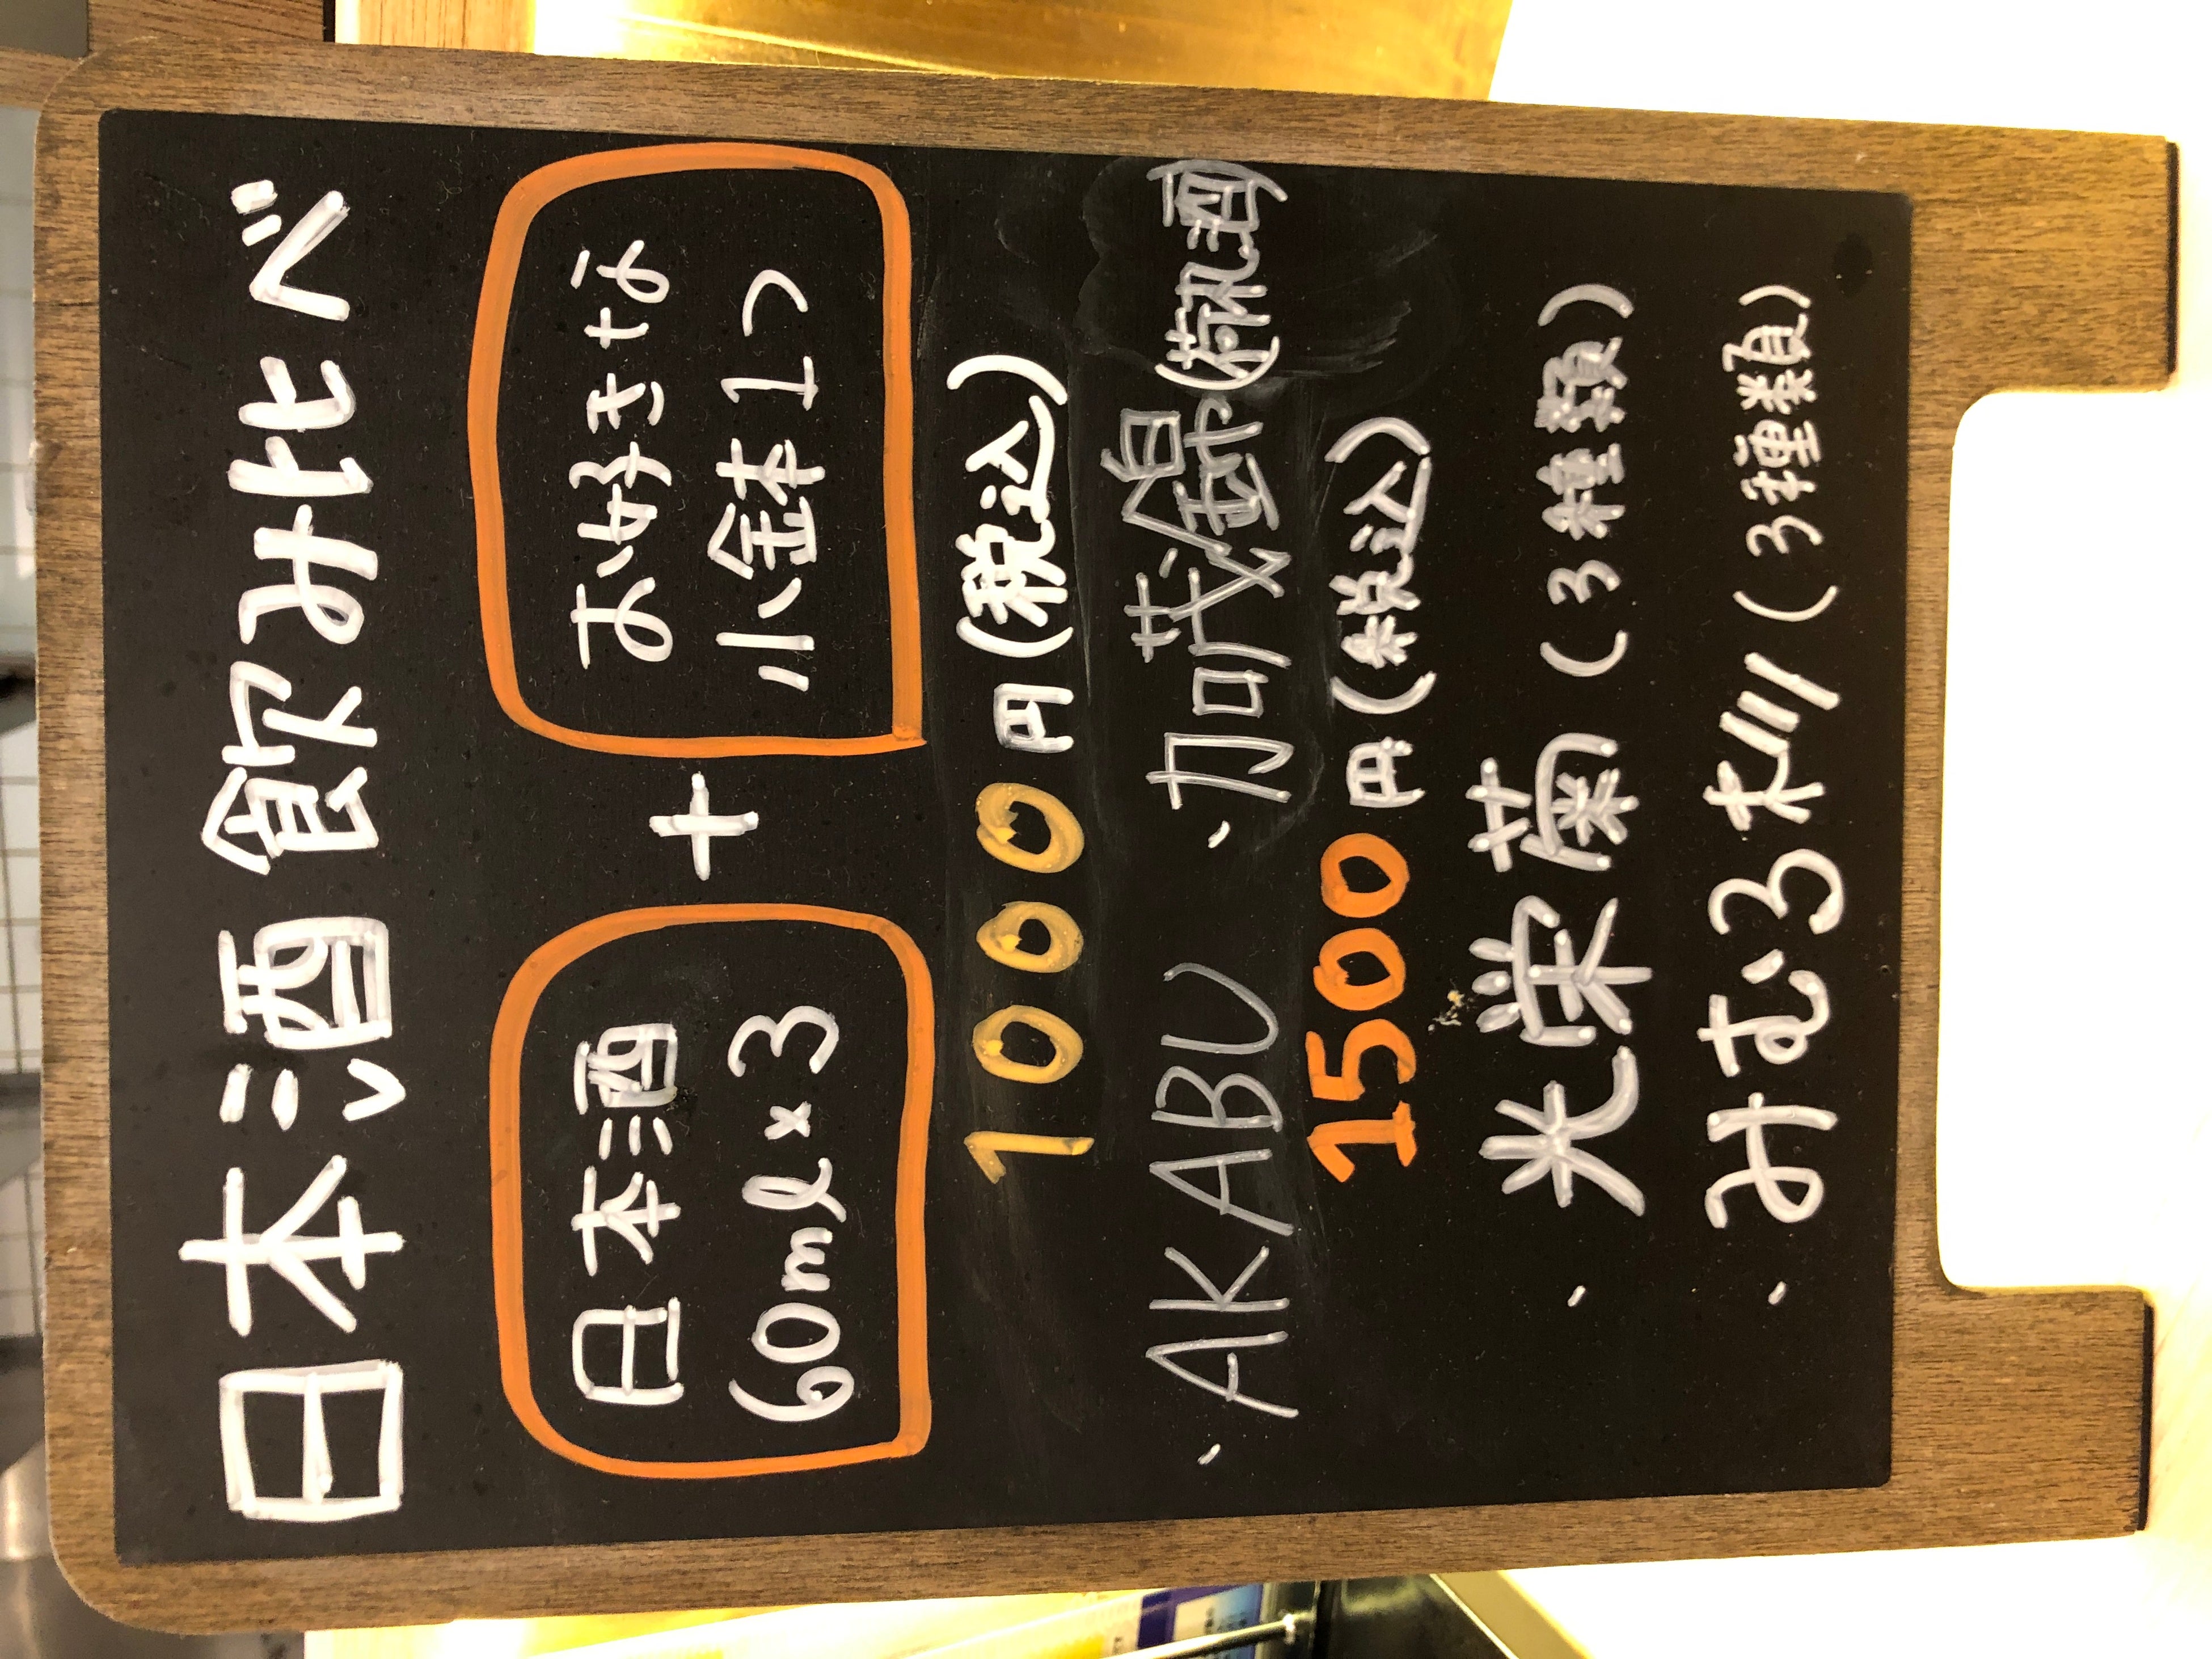 日本酒飲み比べ
日本酒
60ml×3
+
お好きな
小鉢1つ
1000円(税込)
・AKABU ・加茂錦(荷札酒)
1500円(税込)
・光栄菊(3種類)
・みむろ杉(3種類)